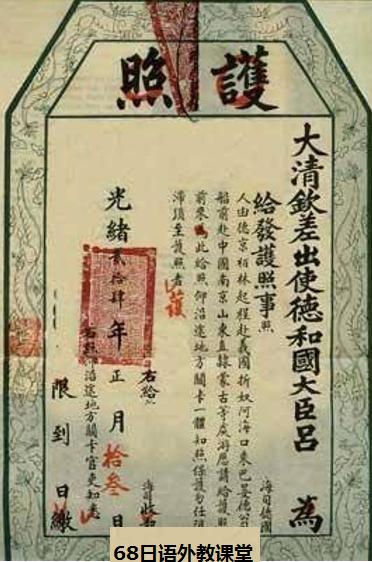 護照
大清欽差出使德和國大臣呂 為
給發護照事照
海司德國
人由德京栢林起程赴義國折奴阿海口乘巴晏德公司
船前赴中國南京山東直隸蒙古等處游歷請給護照
前來為此給照仰沿途地方關卡一體知照保護勿任阻
滯須至護照者
護
右給
海司收執
光緒貳拾肆年正月拾叁日
右照仰沿途地方關卡官吏知悉
限到日繳
68日语外教课堂